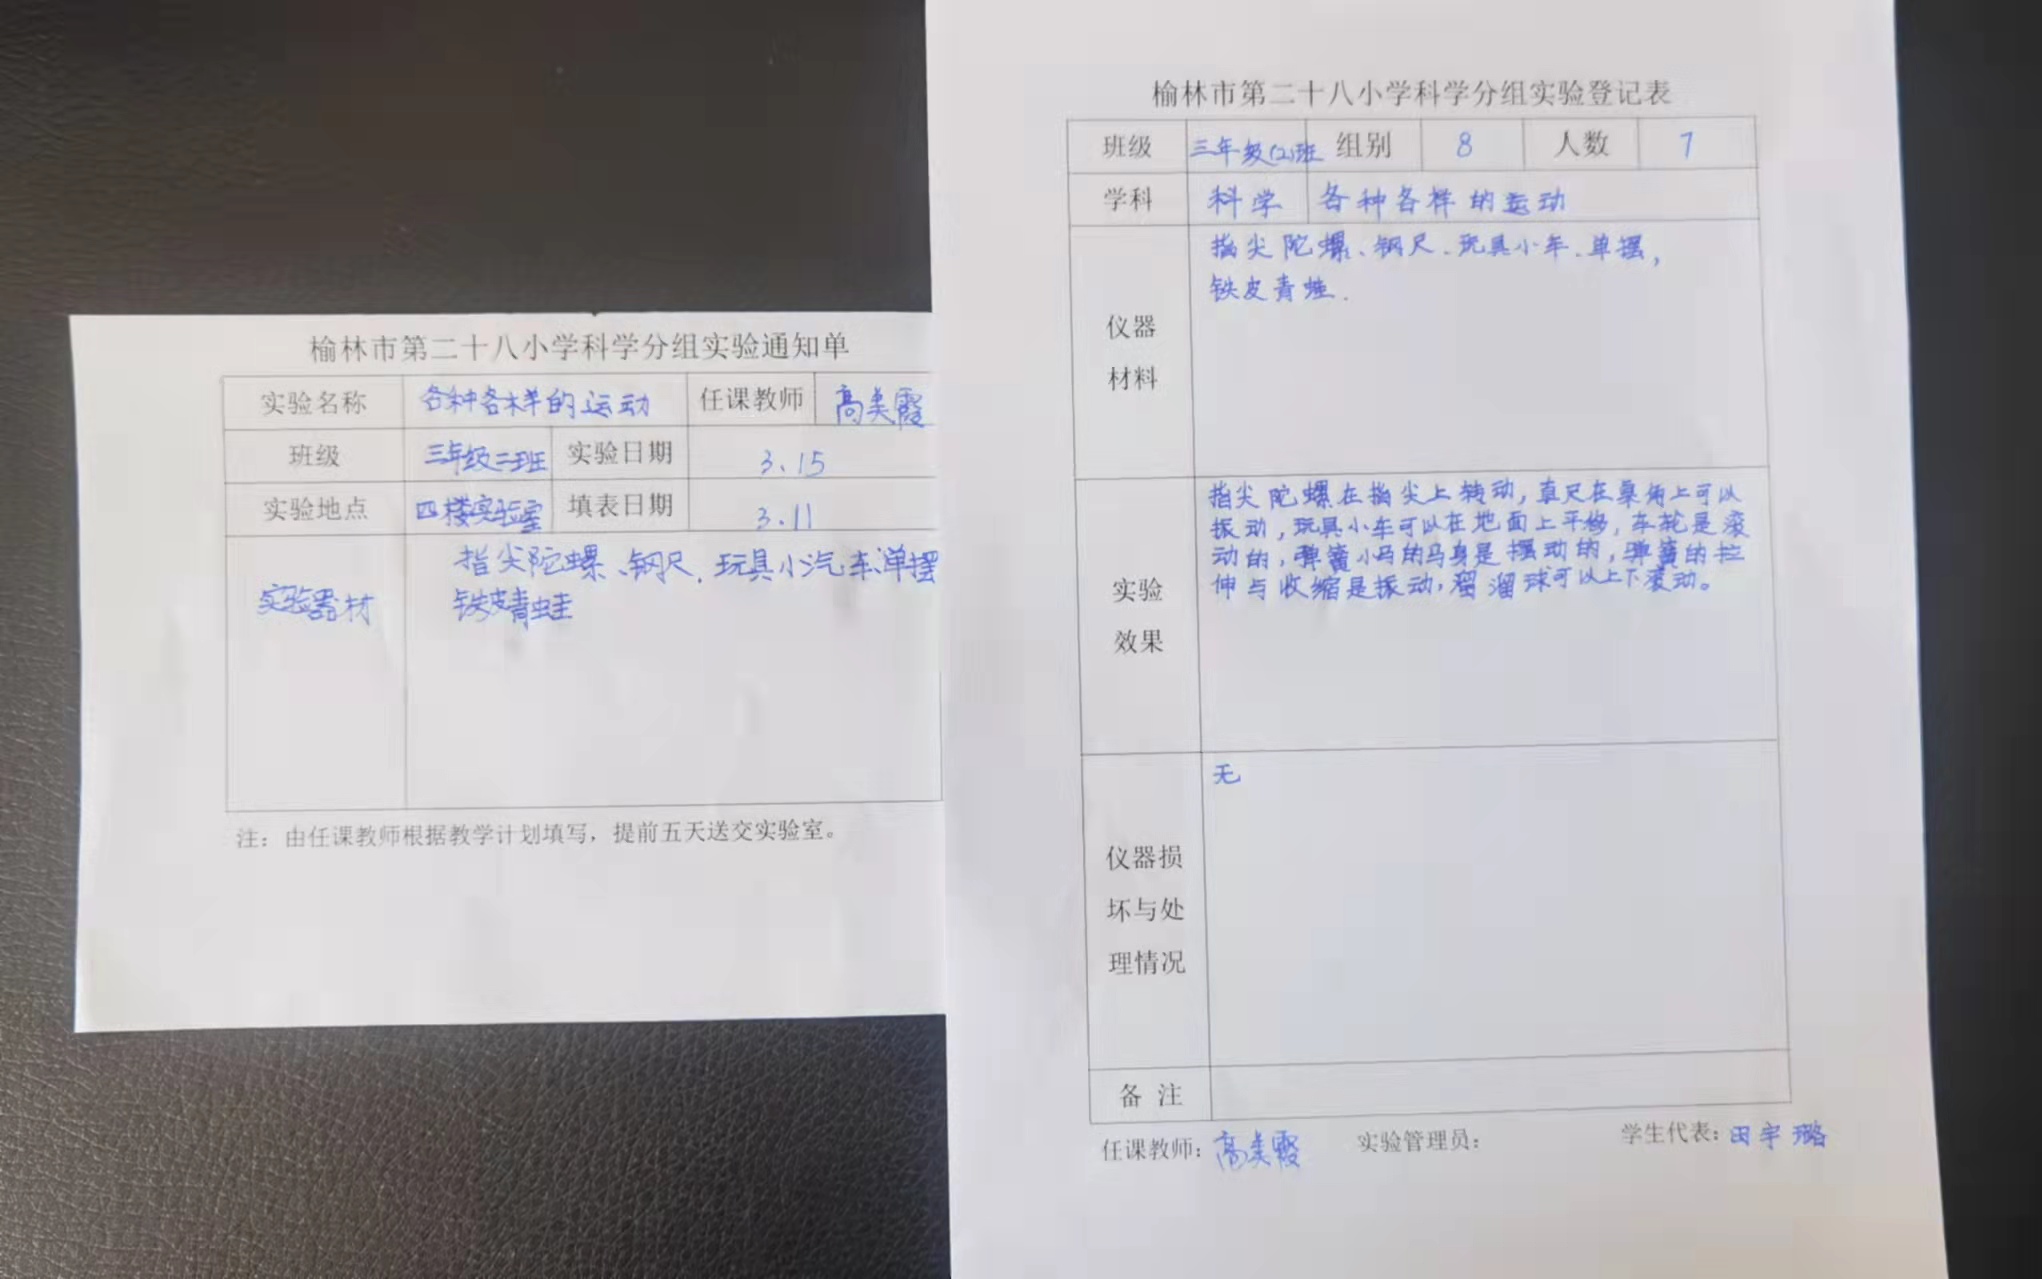 榆林市第二十八小学科学分组实验通知单
实验名称 各种各样的运动 任课教师 高美霞
班级 三年级二班 实验日期 3.15
实验地点 四楼实验室 填表日期 3.11
实验器材 指尖陀螺、钢尺、玩具小汽车、单摆
铁皮青蛙
注：由任课教师根据教学计划填写，提前五天送交实验室。
榆林市第二十八小学科学分组实验登记表
班级 三年级(2)班 组别 8 人数 7
学科 科学 各种各样的运动
仪器
材料
指尖陀螺、钢尺、玩具小车、单摆，
铁皮青蛙.
实验
效果
指尖陀螺在指尖上转动，直尺在桌角上可以
振动，玩具小车可以在地面上平移，车轮是滚
动的，弹簧小马的马身是摆动的，弹簧的拉
伸与收缩是振动，溜溜球可以上下滚动。
仪器损
坏与处
理情况
无
备 注
任课教师：高美霞 实验管理员： 学生代表：田宇璐